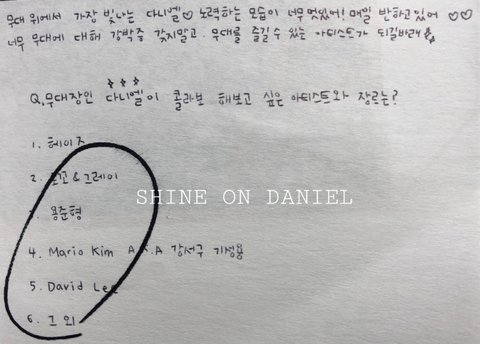 무대 위에서 가장 빛나는 다니엘♡ 노력하는 모습이 너무 멋있어! 매일 반하고있어 ♡♡
너무 무대에 대해 강박증 갖지말고 무대를 즐길 수 있는 아티스트가 되길바래
Q. 무대장인 다니엘이 콜라보 해보고 싶은 아티스트와 장르는?
1. 헤이즈
2. 로꼬 & 그레이
SHINE ON DANIEL
3. 용준형
4. Mario Kim A.K.A 강서구 기성용
5. David Lee
6. 그 외